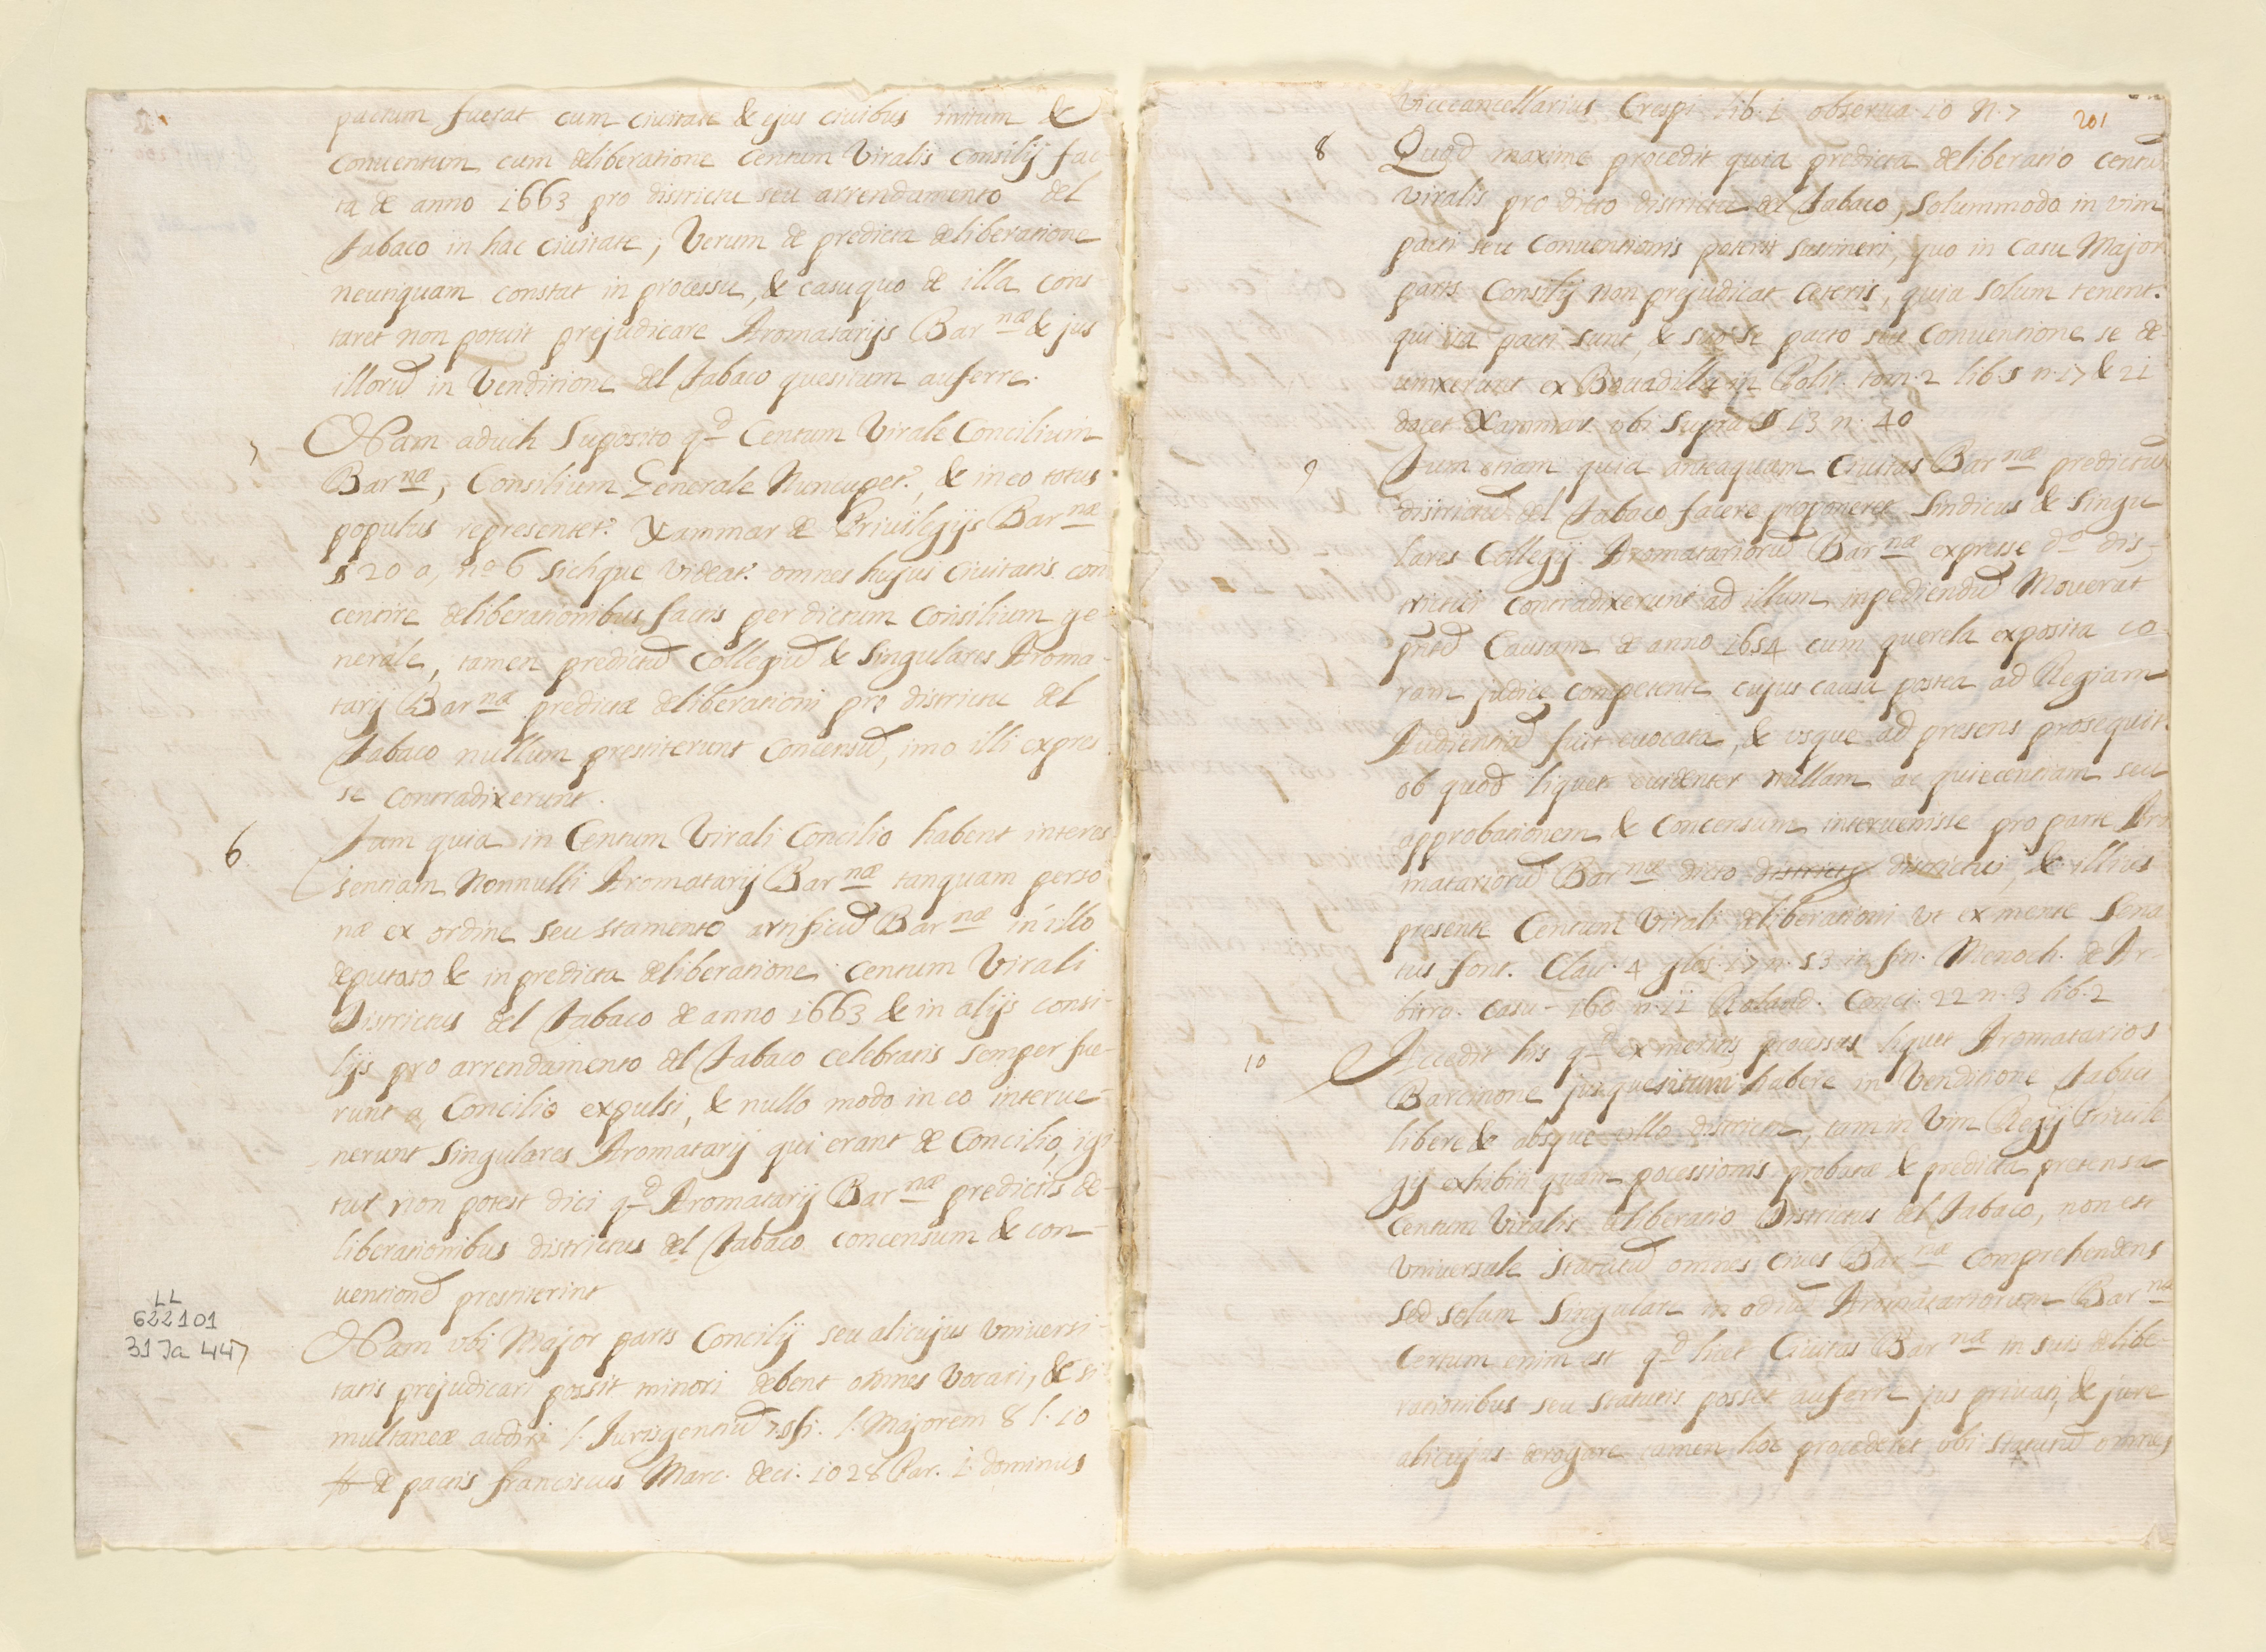 pactum fuerat cum ciuitate & ejus ciuibus initum &
conuentum cum deliberatione Centum Viralis Consilij fac-
ta de anno 1663 pro districtu seu arrendamento del
Tabaco in hac ciuitate; Verum de predicta deliberatione
neutiquam constat in processu, & casuquo de illa cons
taret non potuit prejudicare Aromatarijs Barnæ & jus
illorũ in Venditione del Tabaco quesitum auferre.
Nam aduch Suposito qd Centum Virale Concilium
Barnæ, Consilium Generale Nuncupet., & in eo totus
populus representet. Xammar de Priuilegijs Barnæ
§ 20 a, no 6 Sichque Videat. omnes hujus Ciuitatis con
centire deliberationibus factis per dictum Consilium ge-
nerale, tamen predictũ Collegiũ & Singulares Aroma-
tarij Barnæ predictæ deliberationi pro districtu del
Tabaco nullum prestiterunt Concensũ, imo illi expres
se contradixerunt.
6 Tam quia in Centum Virali Concilio habent interes
sentiam Nonnulli Aromatarij Barnæ tanquam perso
næ ex ordine seu stamento artificũ Barnæ in illo
deputato & in predicta deliberatione Centum Virali
Districtus del Tabaco de anno 1663 & in alijs consi-
lijs pro arrendamento del Tabaco celebratis semper fue-
runt a, Concilio expulsi, & nullo modo in eo interue-
nerunt Singulares Aromatarij qui erant de Concilio, igi
tur non potest dici qd Aromatarij Barnæ predictis de-
liberationibus districtus del Tabaco concensum & con-
uentionẽ prestiterint
Nam ubi Major pars Concilij seu alicujus Vniuersi-
tatis prejudicari possit minori debent omnes Vocari, & si
multaneæ audiri l. Jurisgentiũ 7. §fi. l. Majorem 8 l. 10
ff de pactis franciscus Marc. deci. 1028 Par. 1. dominus
LL
622101
31 Ja 447
201
Vicecancellarius Crespi lib. 1 obserua 10 N. 7
8 Quod maxime procedit quia predicta deliberatio centũ
Viralis pro dicto districtu del Tabaco, Solummodo in vim
pacti seu Conuentionis poterit sustineri, quo in Casu Major
pars Consilij non prejudicat Ceteris, quia Solum tenent.
qui ita pacti sunt, & pacto seu Conuentione se de
uinxerunt ex Bouadilla in Polit. tom. 2 lib. 5 n. 17 & 21
docet Xammar ubi Supra § 13 n. 40
9 Tum etiam quia anteaquam Ciuitas Barnæ predictum
districtũ del Tabaco facere proponeret Sindicus & Singu
lares Collegij Aromatariorũ Barnæ expresse do dis-
trictui contradixerunt ad illum inpediendũ Mouerũt
Causam de anno 1654 cum querela exposita co-
ram judice competente cujus causa postea ad Regiam
Audientiã fuit euocata, & usque ad presens prosequit.
ob quod liquet euidenter nullam ac quiecentiam seu
approbationem & Concensum interuenisse pro parte Aro
matariorũ Barnæ dicto districtus districtui, & illius
presente Centum Virali deliberationi vt ex mente Sena
tus font. Clau. 4 glos. 17 n. 53 in fin. Menoch. de Ar-
bitra. casu 160 n. 11 Roland. Conci. 22 n. 3 lib. 2
10 Accedit his qd ex meritis processus liquet Aromatarios
Barcinone jusquesitum habere in Venditione Tabaci
libere & absque ullo districtu, tam in Vim Regij Priuile
gij exhibiti quam pocessionis probatæ & predicta pretensa
Centum Viralis deliberatio Districtus del Tabaco, non est
Vniuersale statutũ omnes Ciues Barnæ Comprehendens
Sed solum Singulare in odiũ Aromatariorum Barnæ
Certum enim est qd licet Ciuitas Barnæ in suis delibe-
rationibus seu statutis possit auferre jus priuati, & jure
alicujus derogare tamen hoc procederet ubi statutũ omnes